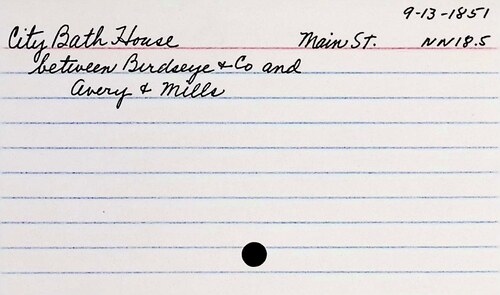 9-13-1851
City Bath House Main St. NN18.5
between Birdseye & Co and
Avery & Mills